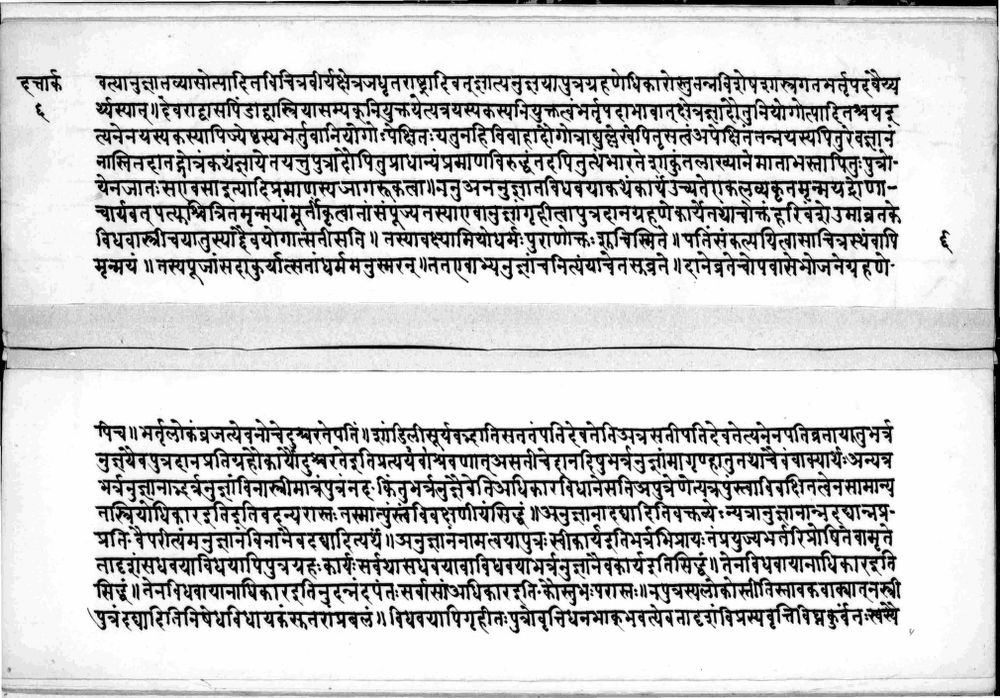 दत्तार्क
६
वत्यानुज्ञातव्यासोत्पादितविचित्रवीर्यक्षेत्रजधृतराष्ट्रादिवत् ज्ञात्यनुज्ञयापुत्रग्रहणेधिकारोस्तुतन्नविशेषशास्त्रगतभर्तृपदवैय्य
र्थ्यस्यात्॥देवराद्वासपिंडाद्वास्त्रियासम्यक्नियुक्तयेत्यत्रयस्यकस्यनियुक्तत्वंभर्तृपदाभावात्क्षेत्रजादौतुनियोगोत्पादितश्चयइ
त्यनेनयस्यकस्यापिज्येष्ठस्यभर्तुर्वानियोगोऽपेक्षितःयतुनहिविवाहादौगोत्राद्युल्लेखेपितृसत्वंअपेक्षितंतन्नयस्यपितुरेवज्ञानं
नास्तितदातद्गोत्रंकथंज्ञायेतयत्तुपुत्रादौपितुःप्राधान्यंप्रमाणविरुद्धंतदपितुत्थंभारतेशकुंतलाख्यानेमाताभस्त्रापितुःपुत्रो
येनजातःसएवसइत्यादिप्रमाणस्यजागरूकत्वात्॥ननुअननुज्ञातविधवयाकथंकार्यंउच्यतेएकलव्यकृतमृन्मयद्रोणा-
चार्यवत् पत्युश्चित्रितंमृन्मयींमूर्तींकृत्वातांसंपूज्यतस्याएवानुज्ञांगृहीत्वापुत्रदानग्रहणेकार्येतथाचोक्तंहरिवंशेउमाव्रतके
विधवास्त्रीचयातुस्याद्दैवयोगात्सतीसति॥तस्यावक्ष्यामियोधर्मःपुराणोक्तःशुचिस्मिते॥पतिंसंकल्पयित्वासाचित्रस्थंवापि
६
मृन्मयं॥तस्यपूजांसदाकुर्यात्सतांधर्ममनुस्मरन्॥ततएवाभ्यनुज्ञांचनित्यंयाचेतसुव्रते॥दानेव्रतेचोपवासेभोजनेग्रहणे-
पिच॥भर्तृलोकंव्रजत्येवनोचेदुश्चरतेपतिं॥शांडिलीसूर्यवद्भातिसततंपतिदेवतेतिअत्रसतीपतिदेवतेत्यनेनपतिव्रतायातुभर्त्र
नुज्ञयैवपुत्रदानप्रतिग्रहौकार्यौदुश्चरतेइतिप्रत्यवायश्रवणात्असतीचेद्दानादिषुभर्त्रनुज्ञांमागृण्हातुतथाचैवंवाक्यार्थःअन्यत्र
भर्त्रनुज्ञानाद्भर्त्रनुज्ञांविनास्त्रीमात्रंपुत्रंनदःकिंतुभर्त्रनुज्ञैवेतिअधिकारविधानेसतिअपुत्रेणेत्यत्रपुंस्त्वाविवक्षितत्वेनसामान्य
तःस्त्रियोधिकारइतिइतिवदन्परास्तःतस्मात्पुंस्त्वंविवक्षणीयंसिद्धं॥अनुज्ञानादद्यादितिवक्तव्येऽन्यत्रानुज्ञानान्नदद्यान्नप्र
प्रतिःवैपरीत्यमनुज्ञानंविनानैवदद्यादित्यर्थः॥अनुज्ञाननामत्वयापुत्रःस्वीकार्यइतिभर्त्रभिप्रायःतंप्रयुज्यभर्तरिप्रोषितेवामृते
तादृशंसधवयाविधवयापिपुत्रग्रहःकार्यःसर्वथासधवयावाविधवयाभर्त्रनुज्ञानैवकार्यइतिसिद्धं॥तेनविधवायानाधिकारइति
सिद्धं॥तेनविधवायानाधिकारइतिनुदन्नदंपतःसर्वासांअधिकारइतिःकौस्तुभःपरास्तः॥नपुत्रस्यलोकोस्तीतिस्तावकवाक्यात्नस्त्री
पुत्रंदद्यादितिनिषेधविधायकंस्कतराप्रबलं॥विधवयापिगृहीतःपुत्रोवृत्तिधनभाक्भवत्येवतादृशंविप्रस्यवृत्तिविघ्नंकुर्वतःस्वस्यै